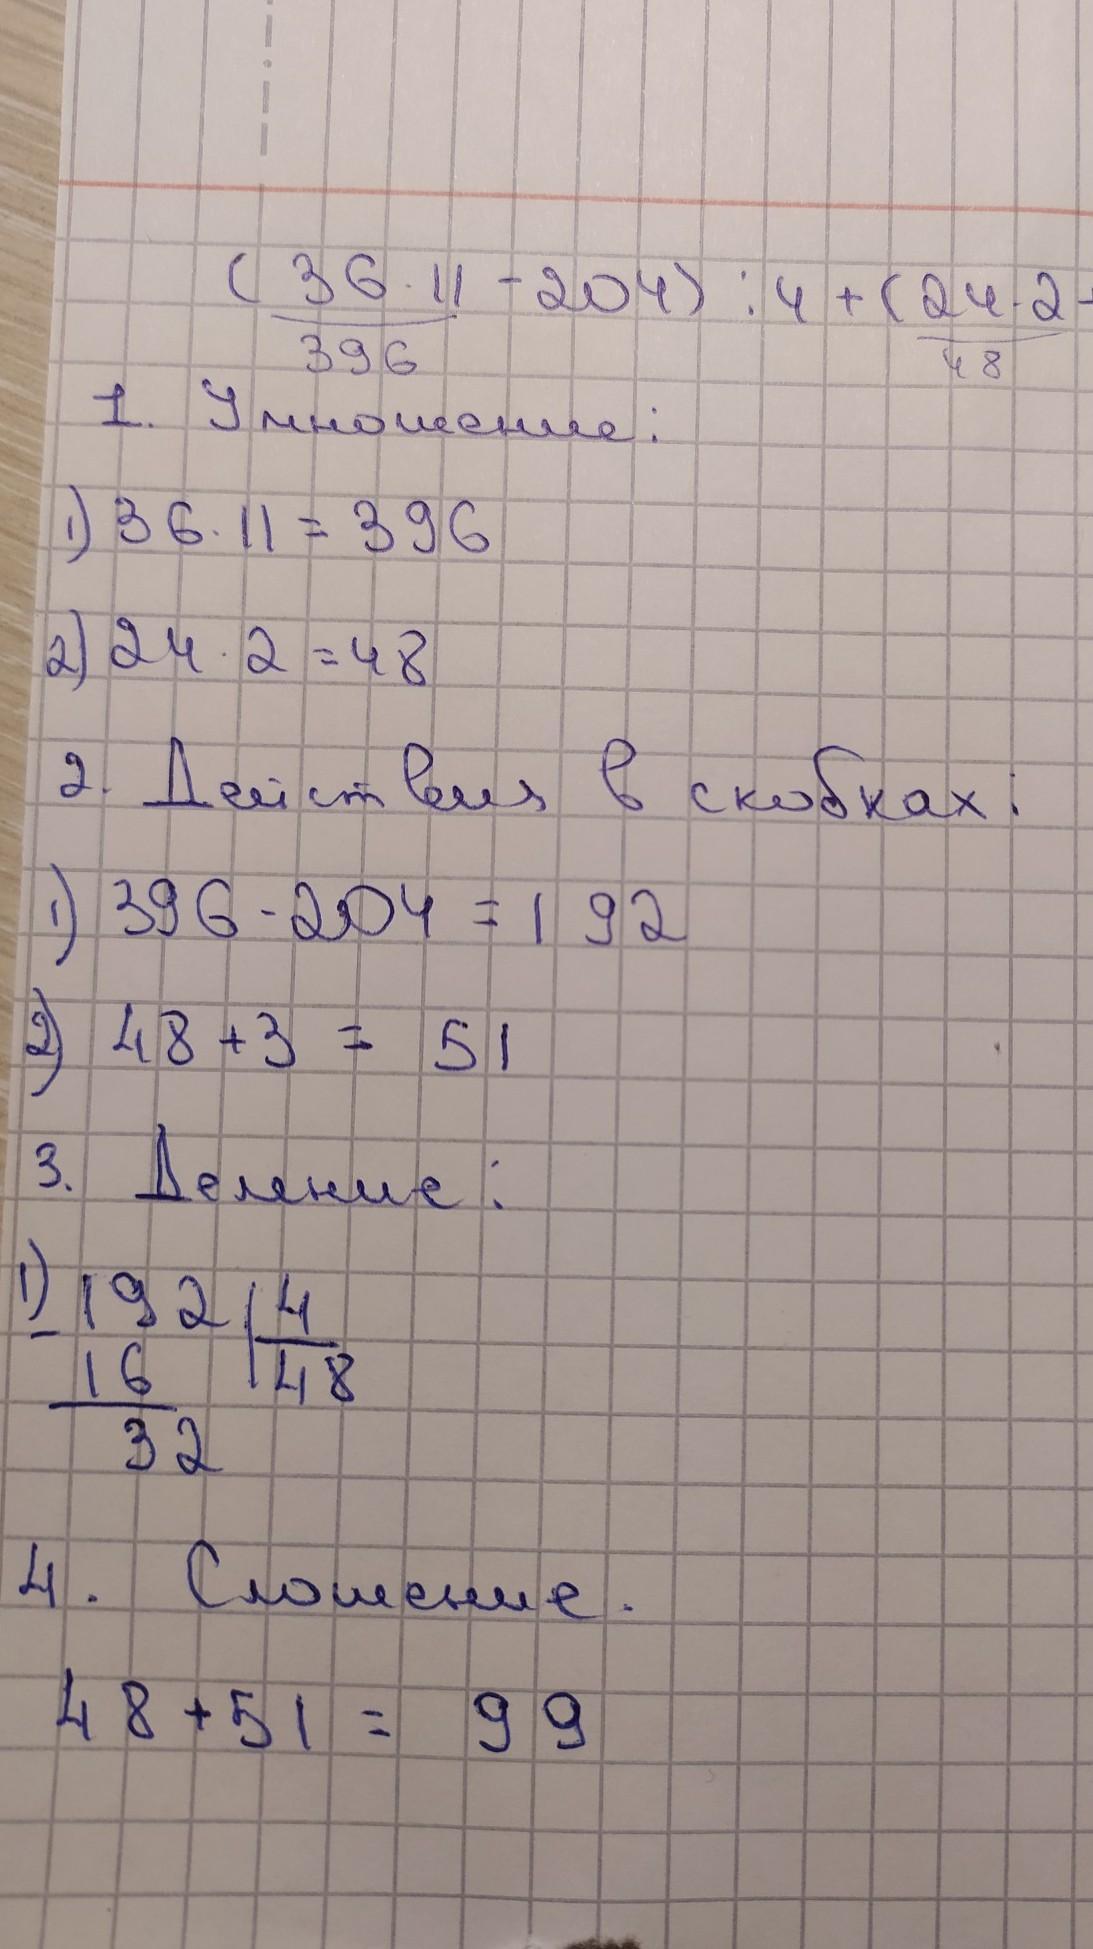 (36·11-204):4+(24·2+
396 48
1. Умножение:
1) 36·11=396
2) 24·2=48
2. Действия в скобках:
1) 396-204=192
2) 48+3=51
3. Деление:
1) 192 4
- 16 48
32
4. Сложение.
48+51=99